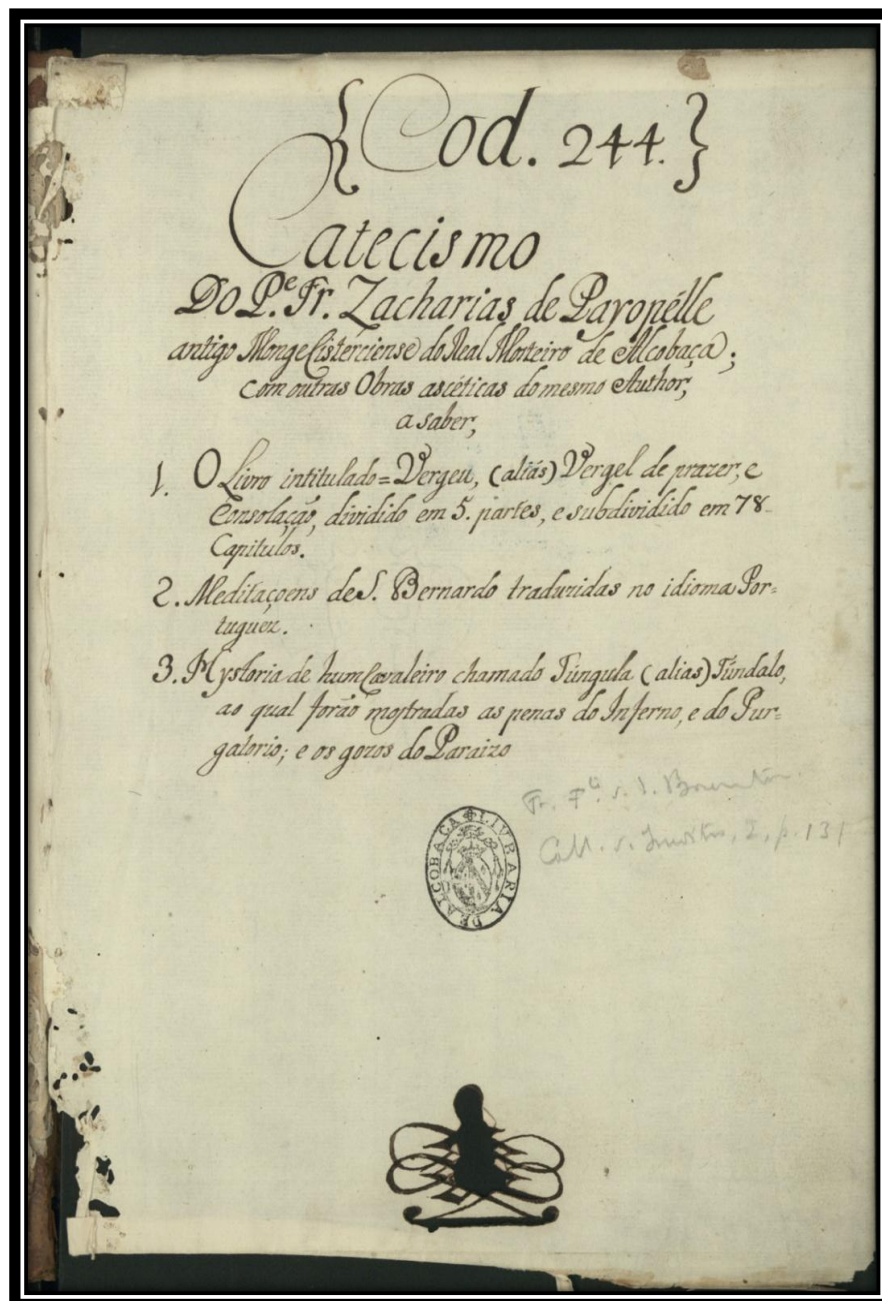 {Cod. 244.}
Catecismo
Do P.e Fr. Zacharias de Payopélle
antigo Monge Cisterciense do Real Mosteiro de Alcobaça;
com outras Obras ascéticas do mesmo Author;
a saber;
1. O Livro intitulado=Vergeu, (aliás) Vergel de prazer, e
Consolação, dividido em 5. partes, e subdividido em 78
Capitulos.
2. Meditaçoens de S. Bernardo traduzidas no idioma Por=
tuguez.
3. Hystoria de hum Cavaleiro chamado Túngula (alias) Túndalo,
ao qual forão mostradas as penas do Inferno, e do Pur=
gatorio; e os gozos do Paraizo
Fr. 
p. 131
LIVRARIA DE ALCOBAÇA